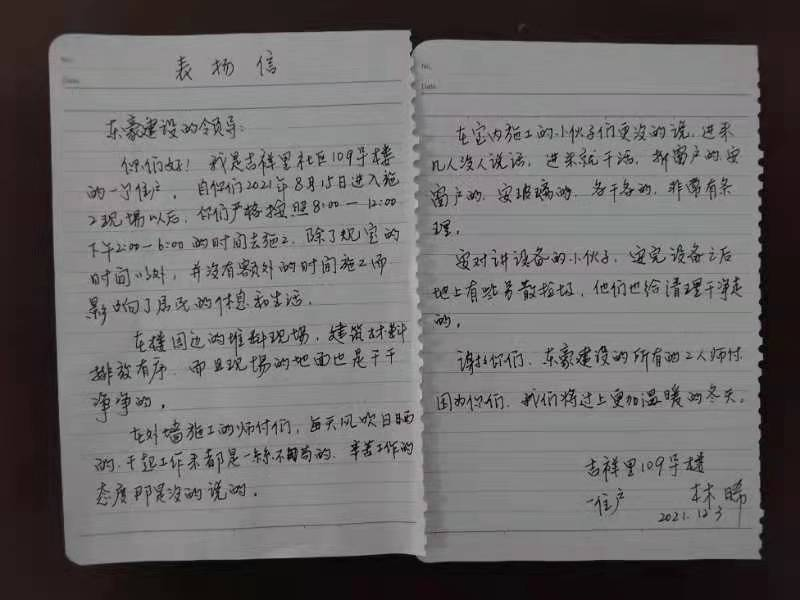 No.
Date
表扬信
东豪建设的领导:
你们好！我是吉祥里社区109号楼
的一个住户，自你们2021年8月15日进入施
工现场以后，你们严格按照8:00—12:00
下午2:00—6:00的时间去施工，除了规定的
时间以外，并没有额外的时间施工而
影响了居民的休息和生活。
在楼周边的堆料现场，建筑材料
排放有序，而且现场的地面也是干干
净净的。
在外墙施工的师付们，每天风吹日晒
的，干起工作来都是一丝不苟的，辛苦工作的
态度那是没的说的。
No.
Date
在室内施工的小伙子们更没的说，进来
几人没人说话，进来就干活，拆窗户的，安
窗户的，安玻璃的，各干各的，非常有条
理。
安对讲设备的小伙子，安完设备之后
地上有些另散垃圾，他们也给清理干净走
的。
谢谢你们，东豪建设的所有的工人师付
因为你们，我们将过上更加温暖的冬天。
吉祥里109号楼
一住户 林晞
2021.12.3